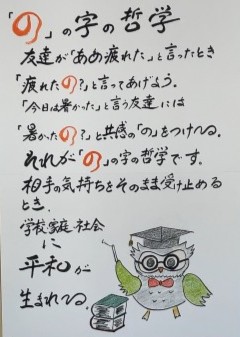 「の」の字の哲学
友達が「ああ疲れた」と言ったとき
「疲れたの?」と言ってあげよう。
「今日は暑かった」と言う友達には
「暑かたの?」と共感の「の」をつける。
それが「の」の字の哲学です。
相手の気持ちをそのまま受け止める
とき、
学校・家庭・社会
に
平和が
生まれてる。